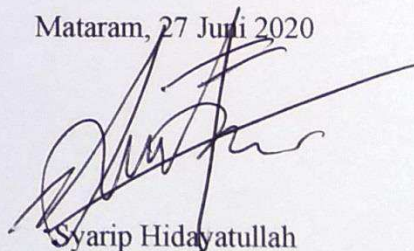 Mataram, 27 Juni 2020
Syarip Hidayatullah